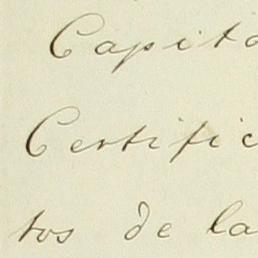 Capito
Certific
tos de la